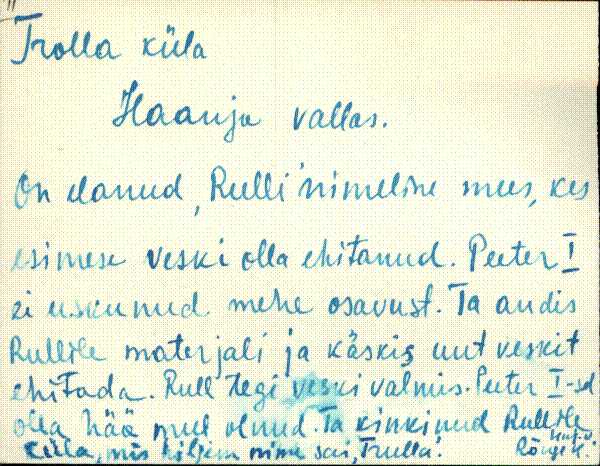 11
Trolla küla
Haanja vallas.
On elanud, "Rulli" nimeline mees, kes
esimese veski olla ehitanud. Peeter I
ei uskunud mehe osavust. Ta andis
Rullile materjali ja käskis uut veskit
ehitada. Rull tegi veski valmis. Peeter I-sel
olla hää meel olnud. Ta kinkinud Rullile
küla, mis hiljem nime sai, "Trulla".
Rõuge k.